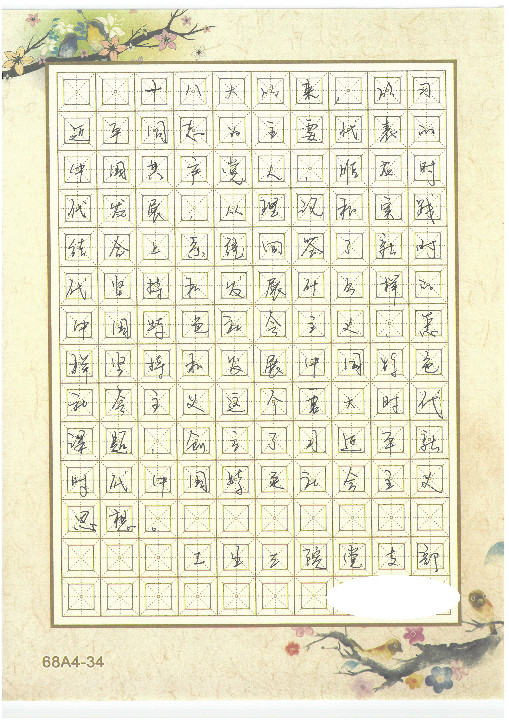 十八大以来，以习
近平同志为主要代表的
中国共产党人，顺应时
代发展，从理论和实践
结合上系统回答了新时
代坚持和发展什么样的
中国特色社会主义，怎
样坚持和发展中国特色
社会主义这个重大时代
课题，创立了习近平新
时代中国特色社会主义
思想。
卫生工院党支部
68A4-34